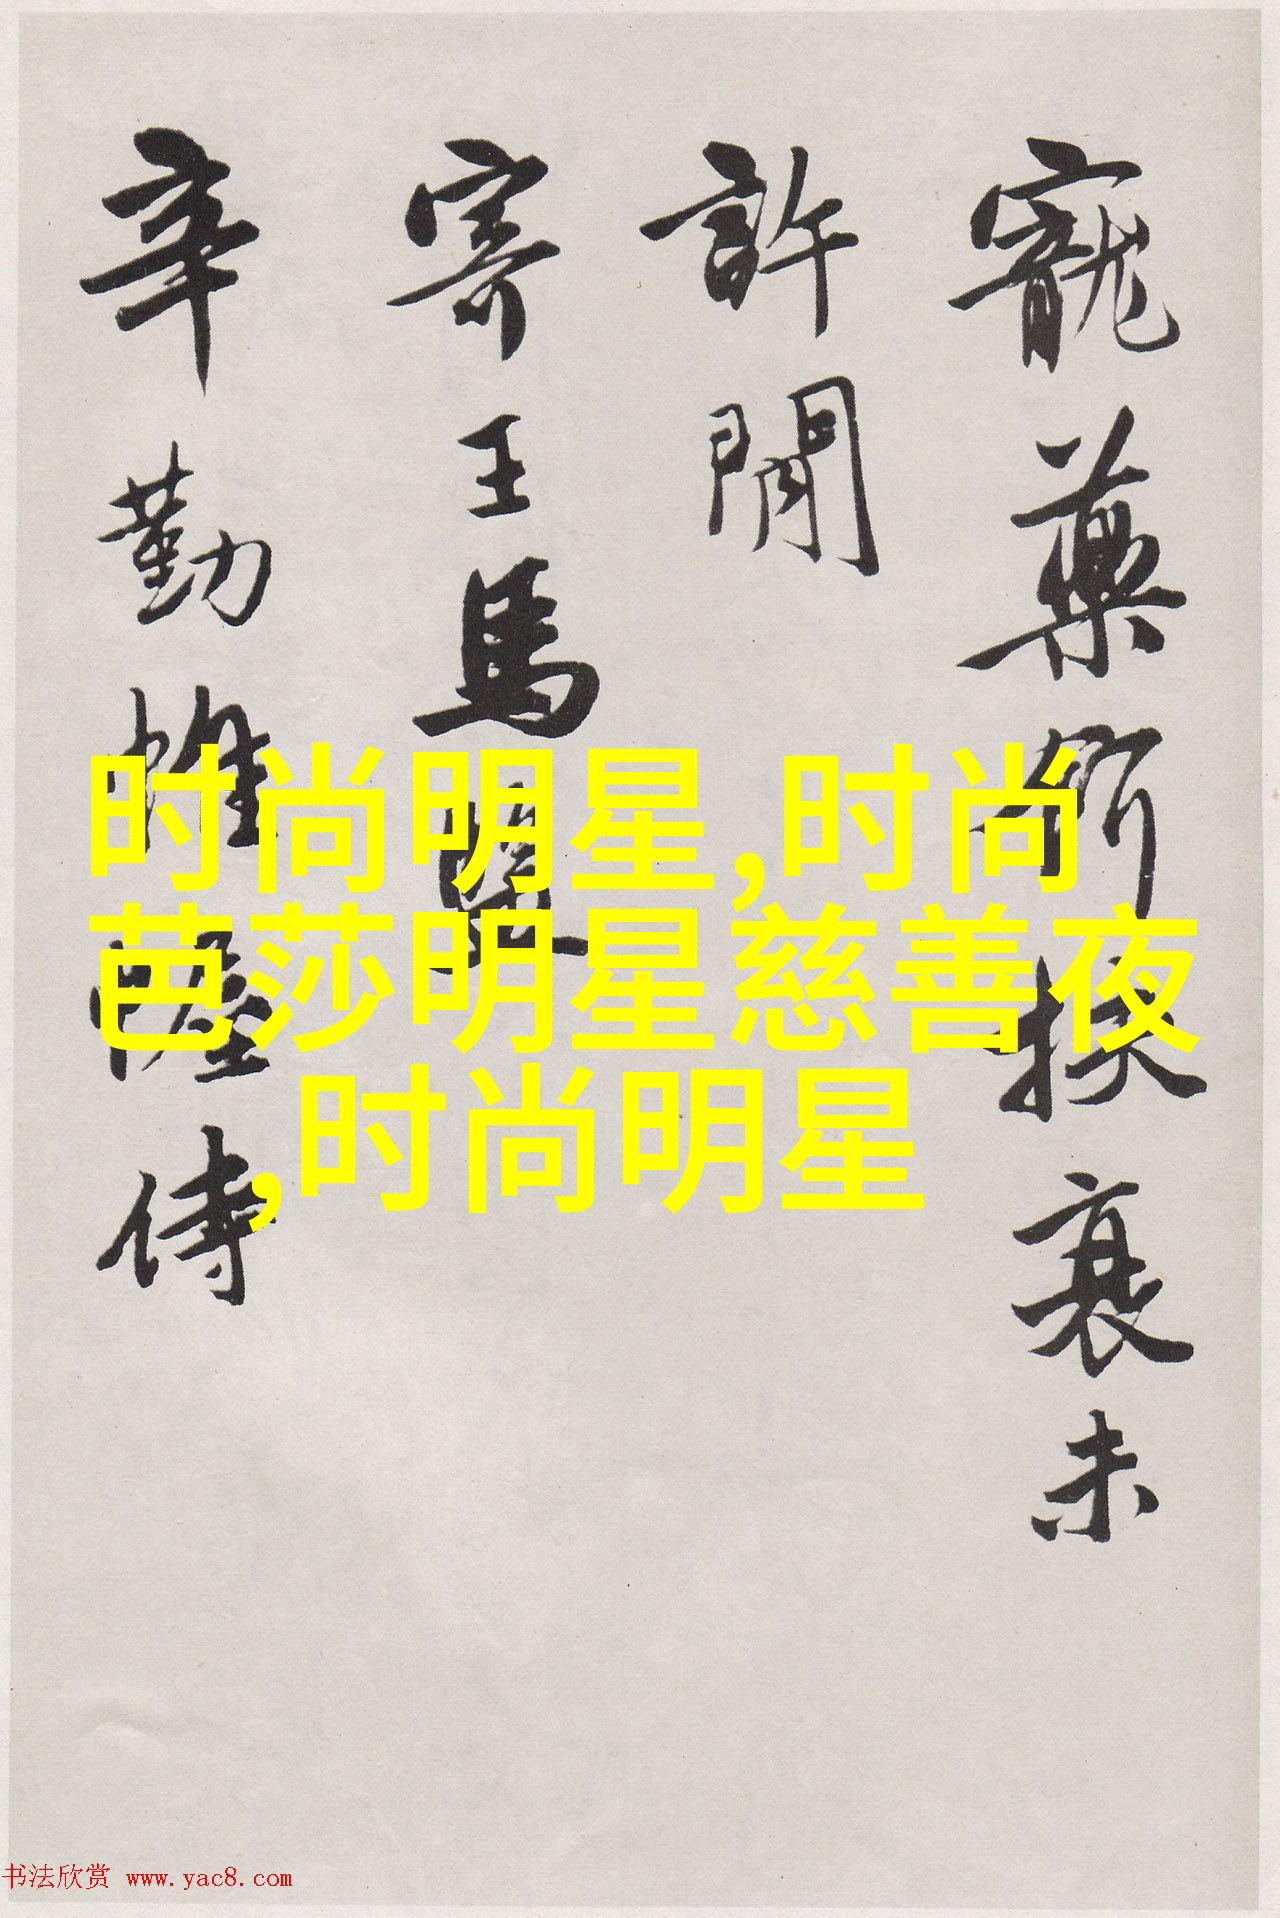 寵藥所扶衰未
許閒
寄王馬翼
辛勤帷幄侍
时尚明星,时尚
芭莎明星慈善夜
,时尚明星
书法欣赏 www.yac8.com